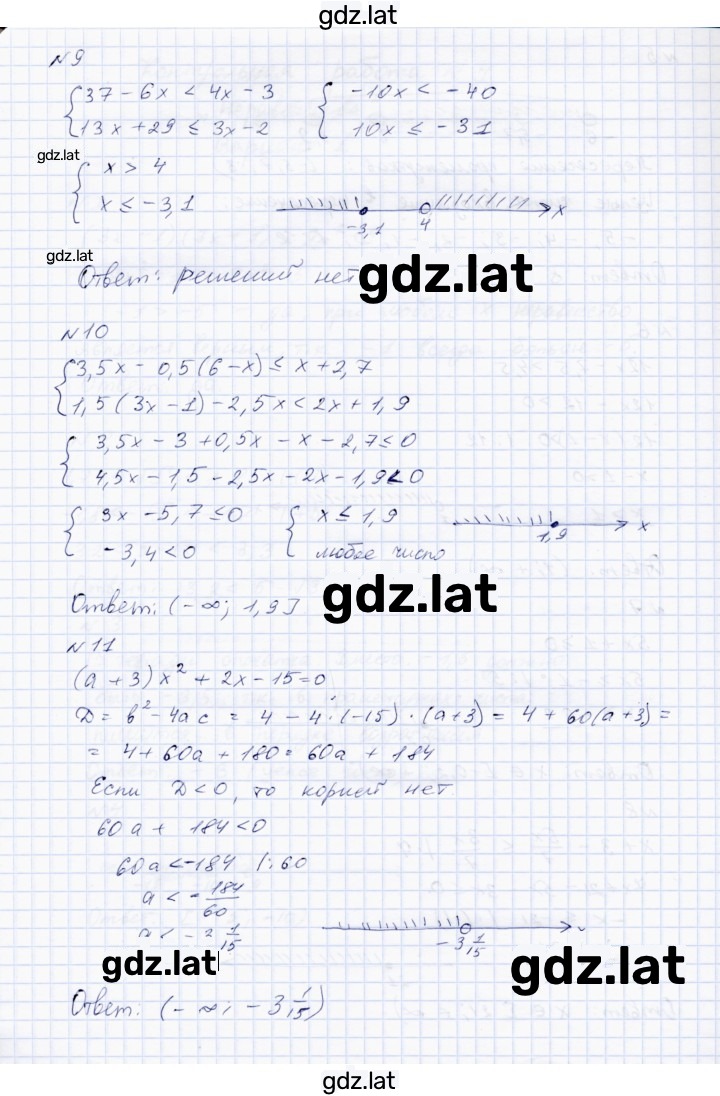 gdz.lat
№9
{37 - 6x < 4x - 3 { -10x < -40
{13x + 29 ≤ 3x - 2 { 10x ≤ -31
gdz.lat
{ x > 4
{ x ≤ -3,1
-3,1 4 x
gdz.lat
Ответ: решений нет
gdz.lat
№10
{3,5x - 0,5(6-x) ≤ x + 2,7
{1,5(3x - 1) - 2,5x < 2x + 1,9
{ 3,5x - 3 + 0,5x - x - 2,7 ≤ 0
{ 4,5x - 1,5 - 2,5x - 2x - 1,9 < 0
{ 3x - 5,7 ≤ 0 { x ≤ 1,9
{ -3,4 < 0 { любое число
1,9 x
Ответ: (-∞; 1,9]
gdz.lat
№11
(a + 3)x² + 2x - 15 = 0
D = b² - 4ac = 4 - 4·(-15)·(a+3) = 4 + 60(a+3) =
= 4 + 60a + 180 = 60a + 184
Если D < 0, то корней нет
60a + 184 < 0
60a < -184 /:60
a < - 184/60
a < - 3 1/15
-3 1/15
gdz.lat
gdz.lat
Ответ: (-∞; -3 1/15)
gdz.lat